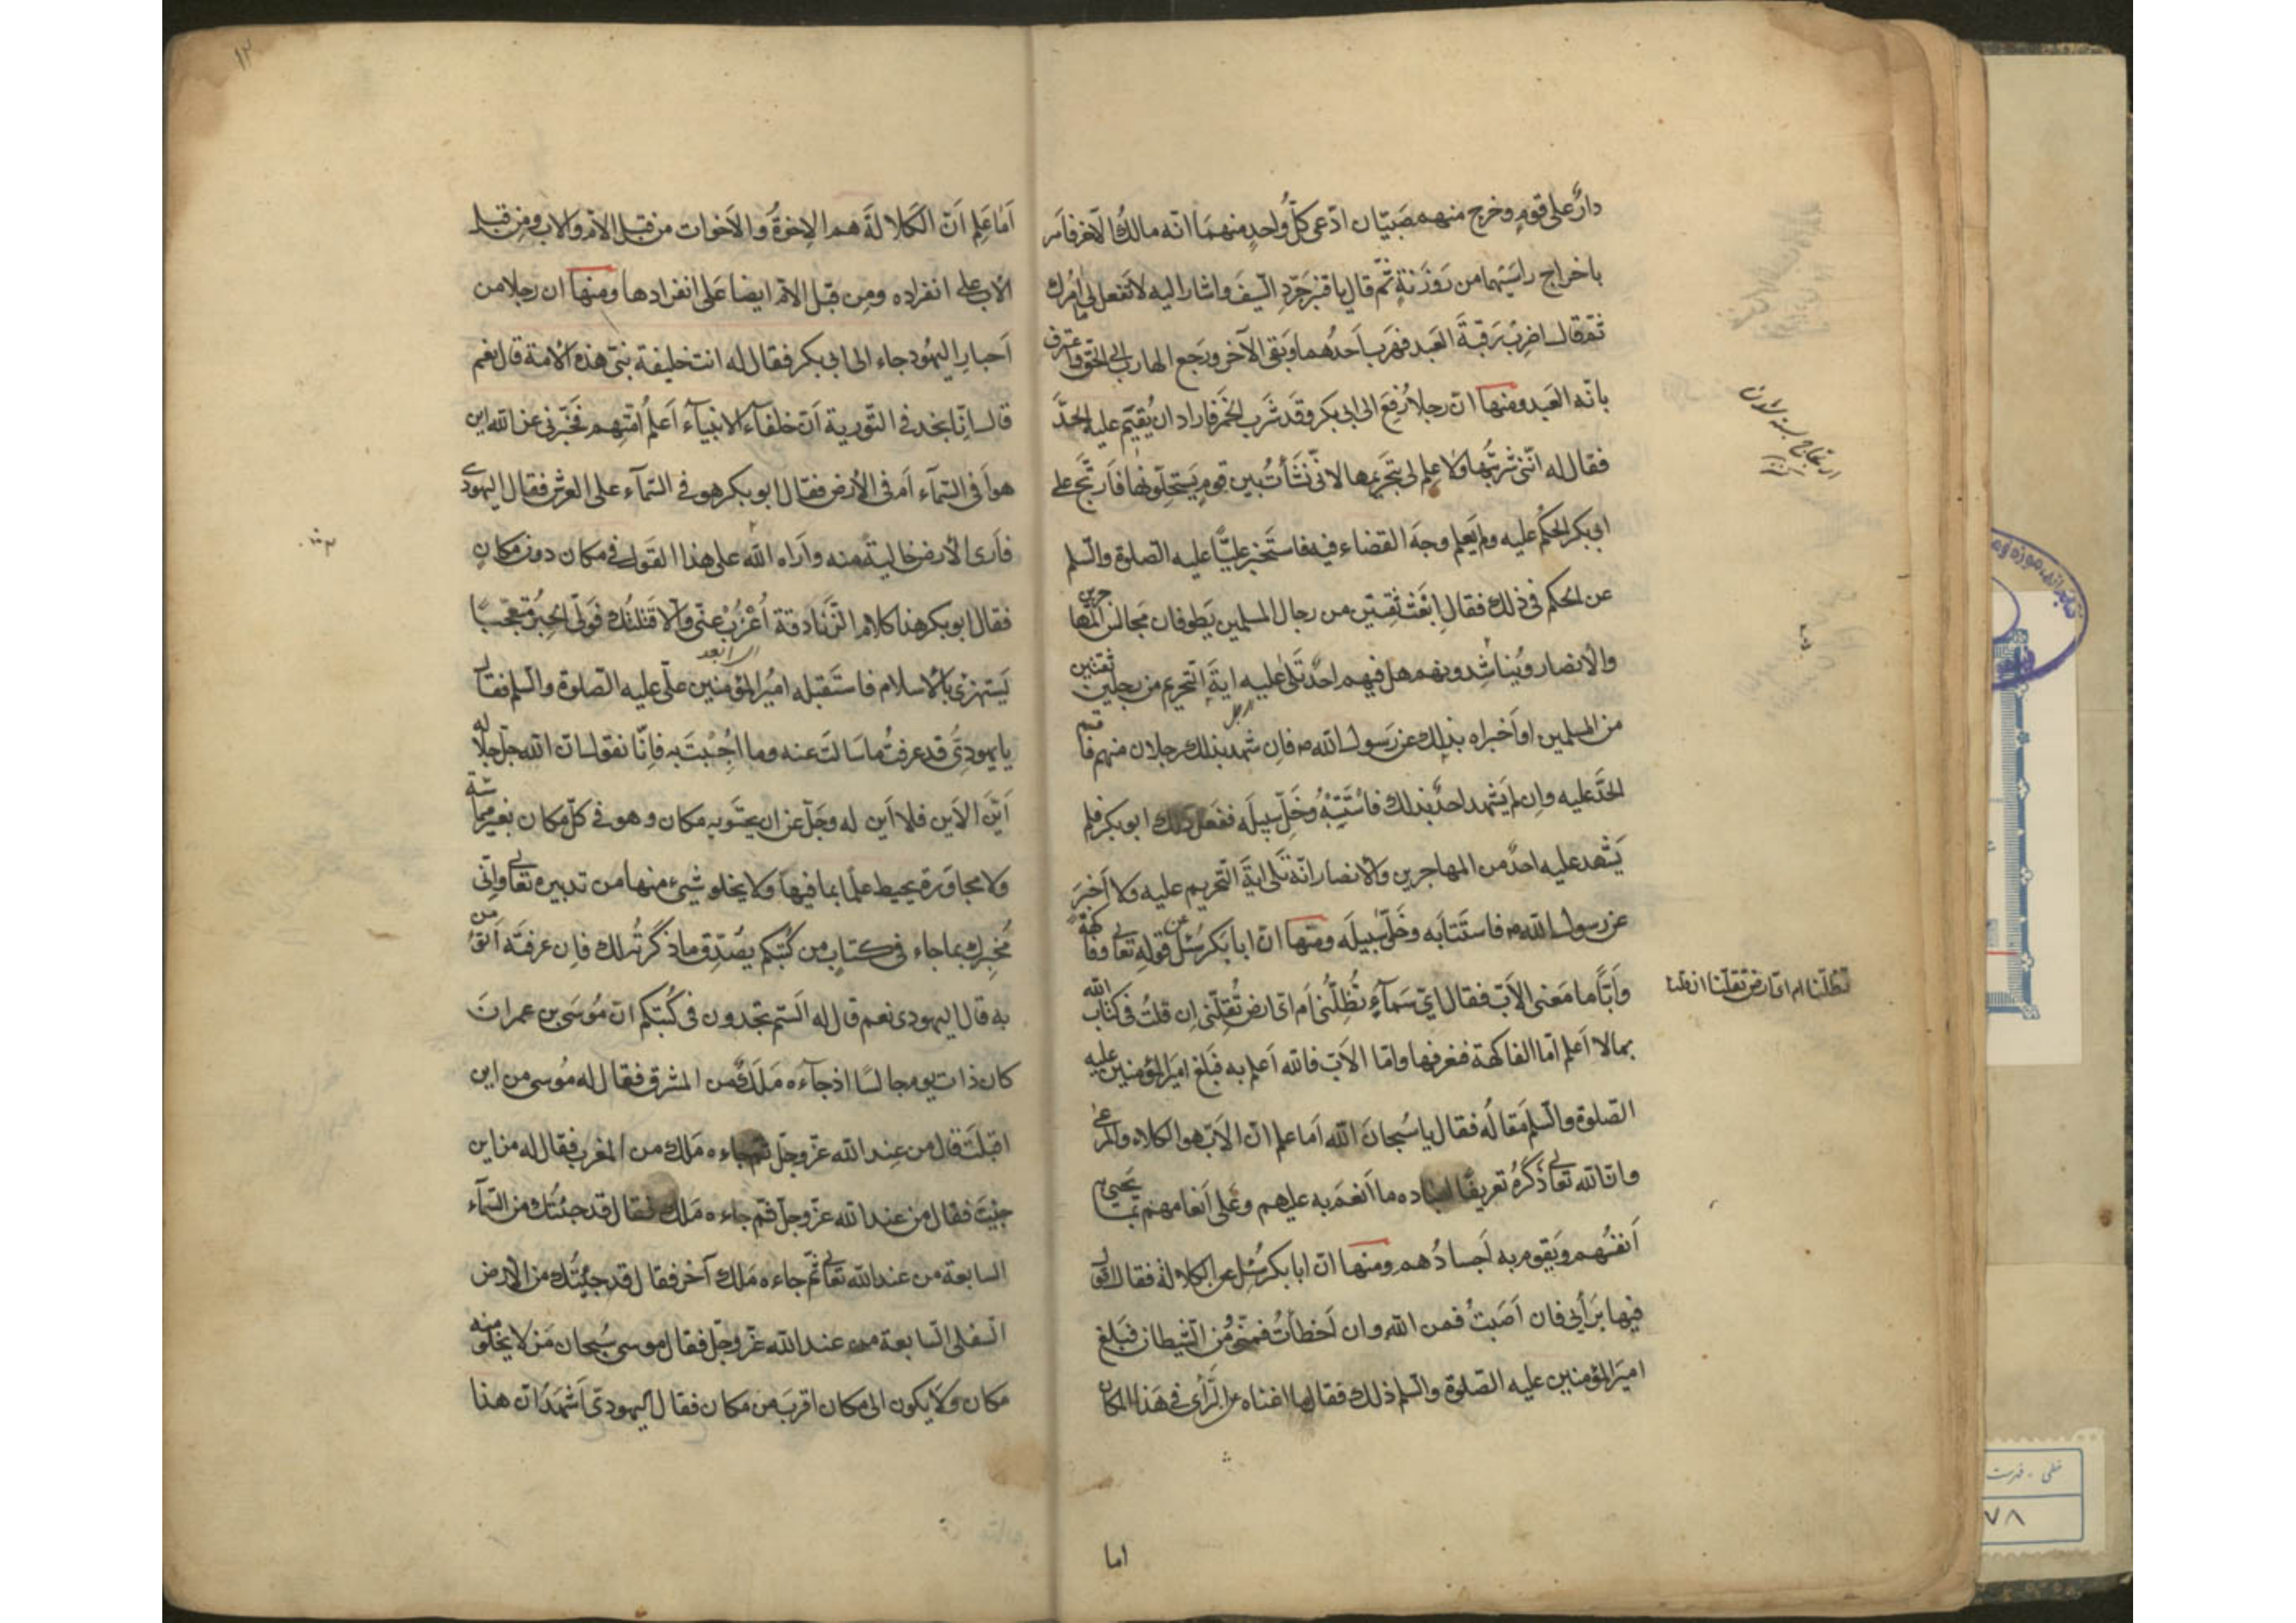 دارٌ على قومٍ وخرج منهم صَبيّان ادّعى كلُّ واحدٍ منهما انّه مالكُ الآخر فأمر
باخراج راسَيهما من رَوزنةٍ ثمّ قال يا قنبر جَرّدِ السّيفَ واشار اليه لا تفعل ما آمُرك
ثمّ قال اضرِبْ رَقبةَ العَبد فهرب احدُهما وبقى الآخر ورجع الهارب الى الحقّ واعترف
بانّه العَبد ومنها انّ رجلا رُفِعَ الى ابى بكر وقد شَرب الخمر فاراد ان يُقيم عليه الحدَّ
فقال له انّنى شربتُها ولا عِلم لى بتحريمها لانّى نَشَأتُ بين قومٍ يَستحلّونها فارتجّ على
ابى بكر الحكم عليه ولم يَعلم وجهَ القضاء فيه فاستَخبر عليًّا عليه الصلوة والسلم
عن الحكم فى ذلك فقال ابعَث ثقتين من رجال المسلمين يَطوفان مَجالس المهاجرين
والانصار ويُناشدونهم هل فيهم احدٌ تَلى عليه ايةَ التحريم من رجلين ثقتين
من المسلمين او اَخبراه بذلك عن رَسول الله ص فان شهد بذلك رجلان منهم فاقم
الحدَّ عليه وان لم يَشهد احدٌ بذلك فاستَتِبْهُ وخَلِّ سبيلَه ففعل ذلك ابو بكر فلم
يَشهد عليه احدٌ من المهاجرين والانصار انّه تَلى ايةَ التحريم عليه ولا اَخبرَ
عن رسول الله ص فاستَتابَه وخَلّى سبيلَه ومنها انّ ابا بكر سُئل عن قوله تعالى وفاكهةً
وابًّا ما معنى الاَبّ فقال اىّ سَمآءٍ تُظِلّنى ام اىّ ارض تُقِلّنى ان قلتُ فى كتاب الله
بما لا اَعلم امّا الفاكهة فنعرفها وامّا الاَبّ فالله اَعلم به فبَلغ امير المؤمنين عليه
الصّلوة والسّلم مقالُه فقال يا سُبحانَ الله اَما علم انّ الاَبّ هو الكلاء والمرعى
وانّ الله تعالى ذكَرَهُ تعريفًا لعباده ما اَنعَمَ به عليهم وعَلى اَنعامهم ممّا تَحيى به
اَنفُسُهم ويَقوم به اَجسادُهم ومنها انّ ابا بكر سُئِل عن الكلالة فقال اقول
فيها برَأيى فان اَصَبتُ فمن الله وان اَخطأتُ فمنّى ومن الشيطان فبَلغ
اميرَ المؤمنين عليه الصلوة والسلم ذلك فقال ما اغناه عن الرَّأى فى هذا المكان
اما
تظلّنا ام اىّ ارض تقلّنا
۱۳
اَما عَلِم اَنّ الكَلالةَ هم الاِخوةُ والاَخوات من قبل الامّ والاب ومن قبل
الاب على انفراده ومِن قبَل الامّ ايضا عَلى انفرادها ومنها ان رجلا من
اَحبارِ اليهُود جاء الى ابى بكر فقال له انت خليفة نبىّ هذه الامة قال نعم
قال انّا نجد فى التّوريةِ اَنّ خلفآء الانبيآء اَعلم اُمّتهم فَخبّرنى عن الله اين
هوَ اَفى السّمآء اَم فى الارض فقال ابو بكر هو فى السّمآء على العرش فقال اليهودى
فاَرى الاَرض خاليةً منه واَراه الله على هذا القول فى مكان دون مكانٍ
فقال ابو بكر هذا كلام الزّنادقة اُعْزُبْ عنّى والّا قتلتُك فَولّى الحِبرُ متعجّبًا
اى ابعد
يَستهزئ بالاسلام فاستَقبله اميُر المؤمنين على عليه الصّلوة والسّلم فقال له
يا يهودىُّ قد عرفتُ ما سَالتَ عنه وما اُجِبْتَ به فانّا نقول انّ الله جلّ جلاله
اَيّنَ الاَين فلا اَين له وجَلّ عن ان يحتَويه مكان وهو فى كلّ مكان بغير مماسّة
ولا مجاورة يحيط علمًا بما فيها ولا يخلو شىء منها من تدبيره تعالى وانّى
مُخبِرك بما جاء فى كتابٍ من كُتبكم يصُدّق ما ذكرتُه لك فان عرفتَه اَتؤمن
به قال اليهودى نعم قال له اَلستم تجدون فى كُتبكم انّ مُوسَى بن عمرانَ
كان ذات يوم جالسًا اذ جآءه مَلَكٌ من المشرق فقال له مُوسى من اين
اقبلتَ قال من عِند الله عزّ وجلّ ثم جاءه مَلك من المغرب فقال له من اين
جئتَ فقال من عند الله عزّ وجلّ ثم جاءه مَلك فقال قد جئتُك من السّمآء
السابعة من عند الله تعالى ثم جاءه مَلك آخر فقال قد جئتُك من الارض
السفلى السّابعة من عند الله عزّ وجلّ فقال موسى سُبحان مَن لا يَخلو منه
مكان ولا يكون الى مكان اقربَ من مكان فقال اليهودىّ اَشهدُ انّ هذا
خطى - فهرست
۷۸